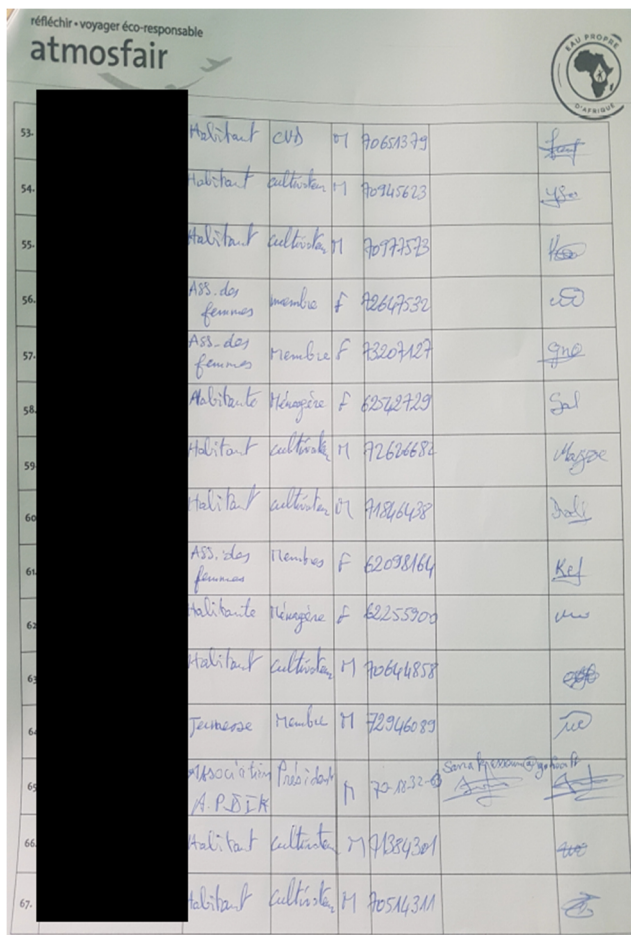 réfléchir • voyager éco-responsable
atmosfair
EAU PROPRE
D'AFRIQUE
53. Habitant CVD M 70651379
54. Habitant cultivateur M 70945623
55. Habitant cultivateur M 70977523
56. Ass. des femmes membre F 72647532
57. Ass. des femmes Membre F 73207127
58. Habitante Ménagère F 62542729 Sal
59. Habitant cultivateur M 72626682
60 Habitant cultivateur M 71846438
61. Ass. des femmes Membres F 62098164 Kef
62 Habitante Ménagère F 62255900
63 Habitant cultivateur M 70644858
64 Jeunesse Membre M 72946089
65 Association A.P.D.I.K Président M
66. Habitant cultivateur M 71384301
67. Habitant cultivateur M 70514311